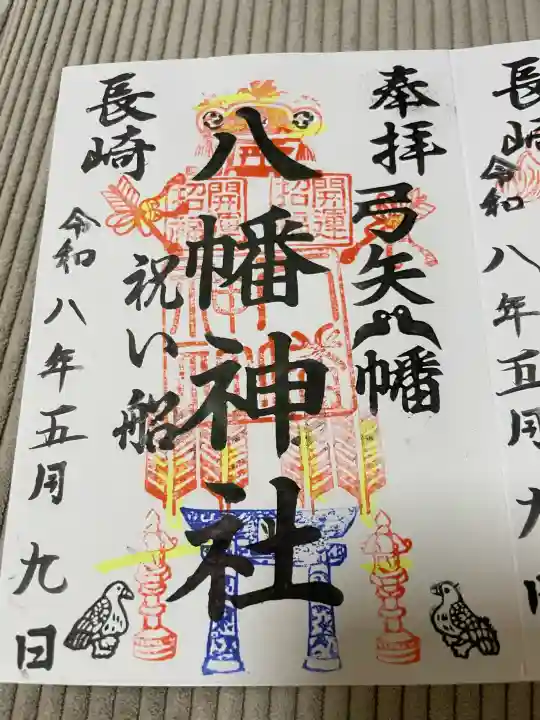 奉拝
弓矢八幡
八幡神社
開運
招福
開運
招福
祝い船
長崎
令和八年五月九日
長崎
令和八年五月九日